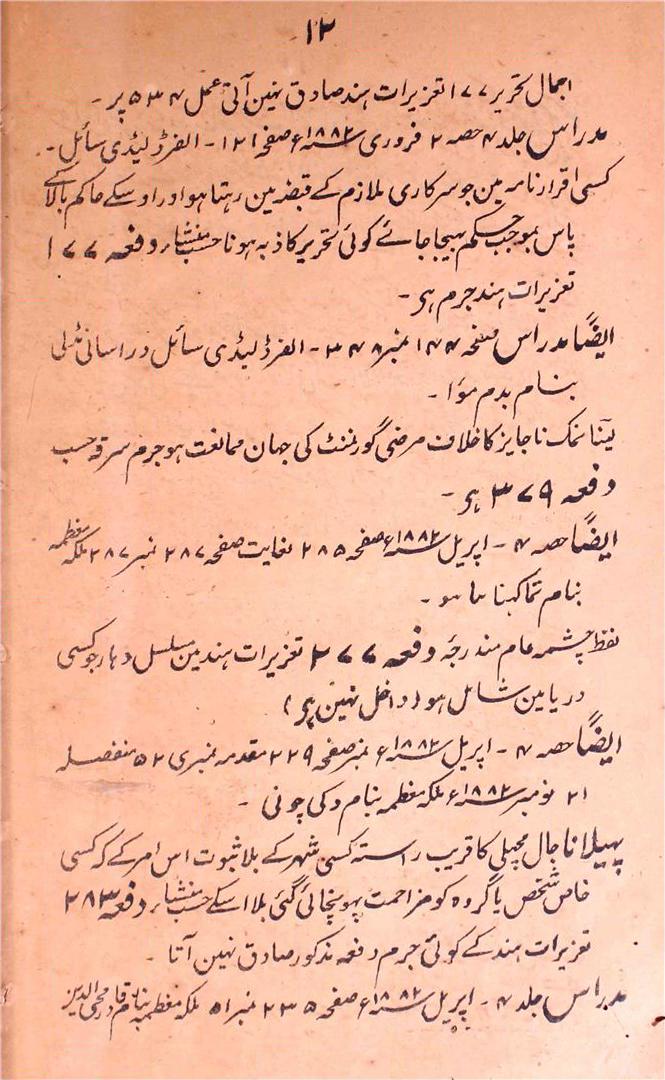 ۱۲
اجمال تحریر ۱۷۷ تعزیرات ہند صادق نہین آتی عمل ۵۳۴ پر -
مدراس جلد ۴ حصہ ۲ فروری ۱۸۸۲ء صفحہ ۱۲۱ - الفرڈ لیڈی سائل -
کسی اقرارنامہ مین جو سرکاری ملازم کے قبضہ مین رہتا ہو اور اوسکے حاکم بالا کے
پاس بموجب حکم بھیجا جائے کوئی تحریر کاذبہ ہونا حسب منشاء دفعہ ۱۷۷
تعزیرات ہند جرم ہی -
ایضًا مدراس صفحہ ۱۴۴ نمبر ۳۴۸ - الفرڈ لیڈی سائل
بنام بدم موا -
لینا نمک ناجایز کا خلاف مرضی گورنمنٹ کی جہان ممانعت ہو جرم سرقہ حسب
دفعہ ۳۷۹ ہی -
ایضًا حصہ ۴ - اپریل ۱۸۸۲ء صفحہ ۲۸۵ لغایت صفحہ ۲۸۷ نمبر ۲۸۷ ملکہ معظمہ
بنام
لفظ چشمہ عام مندرجہ دفعہ ۲۷۷ تعزیرات ہند مین مسلسل دہار جو کسی
دریا مین شامل ہو (داخل نہین ہی)
ایضًا حصہ ۴ - اپریل ۱۸۸۲ء نمبر صفحہ ۲۲۹ مقدمہ نمبری ۵۲ منفصلہ
۲۱ نومبر ۱۸۸۲ء ملکہ معظمہ بنام دکی چونی -
پھیلانا جال مچھلی کا قریب راستہ کسی شہر کے بلا ثبوت اس امر کے کہ کسی
خاص شخص یا گروہ کو مزاحمت پہونچائی گئی بلا اسکے حسب منشاء دفعہ ۲۸۳
تعزیرات ہند کے کوئی جرم دفعہ مذکور صادق نہین آتا -
مدراس جلد ۴ - اپریل ۱۸۸۲ء صفحہ ۲۳۵ نمبر ۵۱ ملکہ معظمہ بنام قادر محی الدین